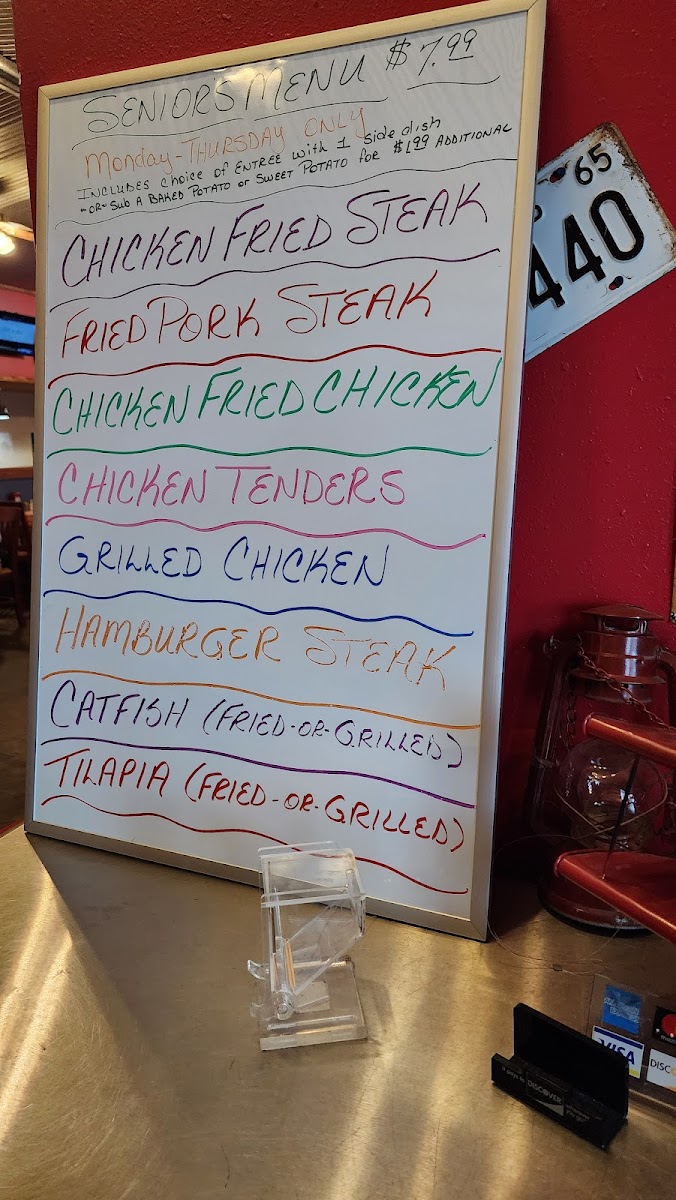 SENIORS MENU $7.99
MONDAY-THURSDAY ONLY
INCLUDES CHOICE OF ENTREE WITH 1 side dish
-OR- SUB A BAKED POTATO or SWEET POTATO for $1.99 ADDITIONAL
CHICKEN FRIED STEAK
FRIED PORK STEAK
CHICKEN FRIED CHICKEN
CHICKEN TENDERS
GRILLED CHICKEN
HAMBURGER STEAK
CATFISH (FRIED-OR-GRILLED)
TILAPIA (FRIED-OR-GRILLED)
65
440
VISA
DISC
DISCOVER